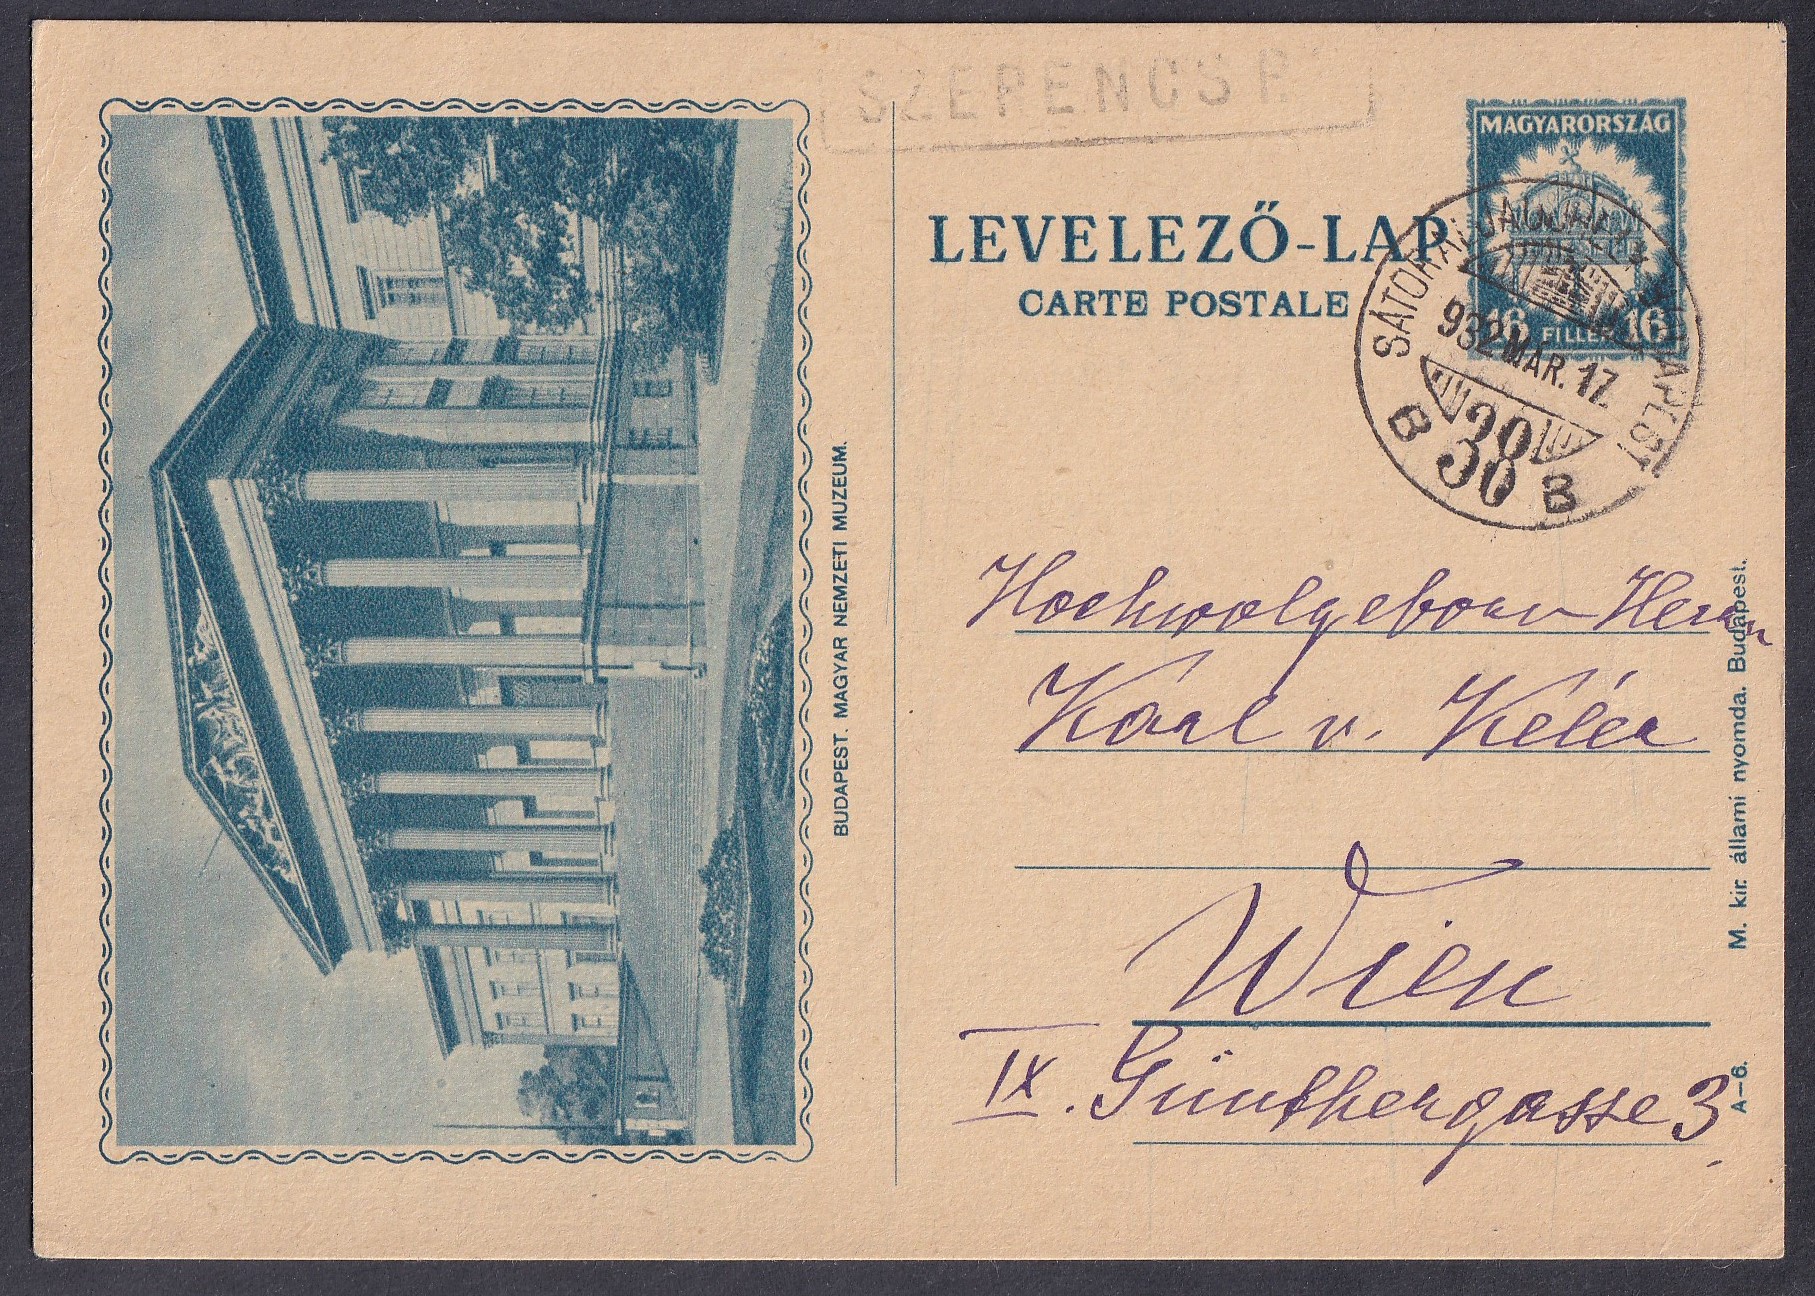 SZERENCS P.
MAGYARORSZÁG
16 FILLÉR 16
LEVELEZŐ-LAP
CARTE POSTALE
SÁTORALJAÚJHELY BUDAPEST
932 MÁR. 17.
B 38 B
Hochwolgeborn Herrn
Kárl v. Kéler
Wien
IX. Günthergasse 3.
BUDAPEST. MAGYAR NEMZETI MUZEUM.
M. kir. állami nyomda. Budapest.
A-6.